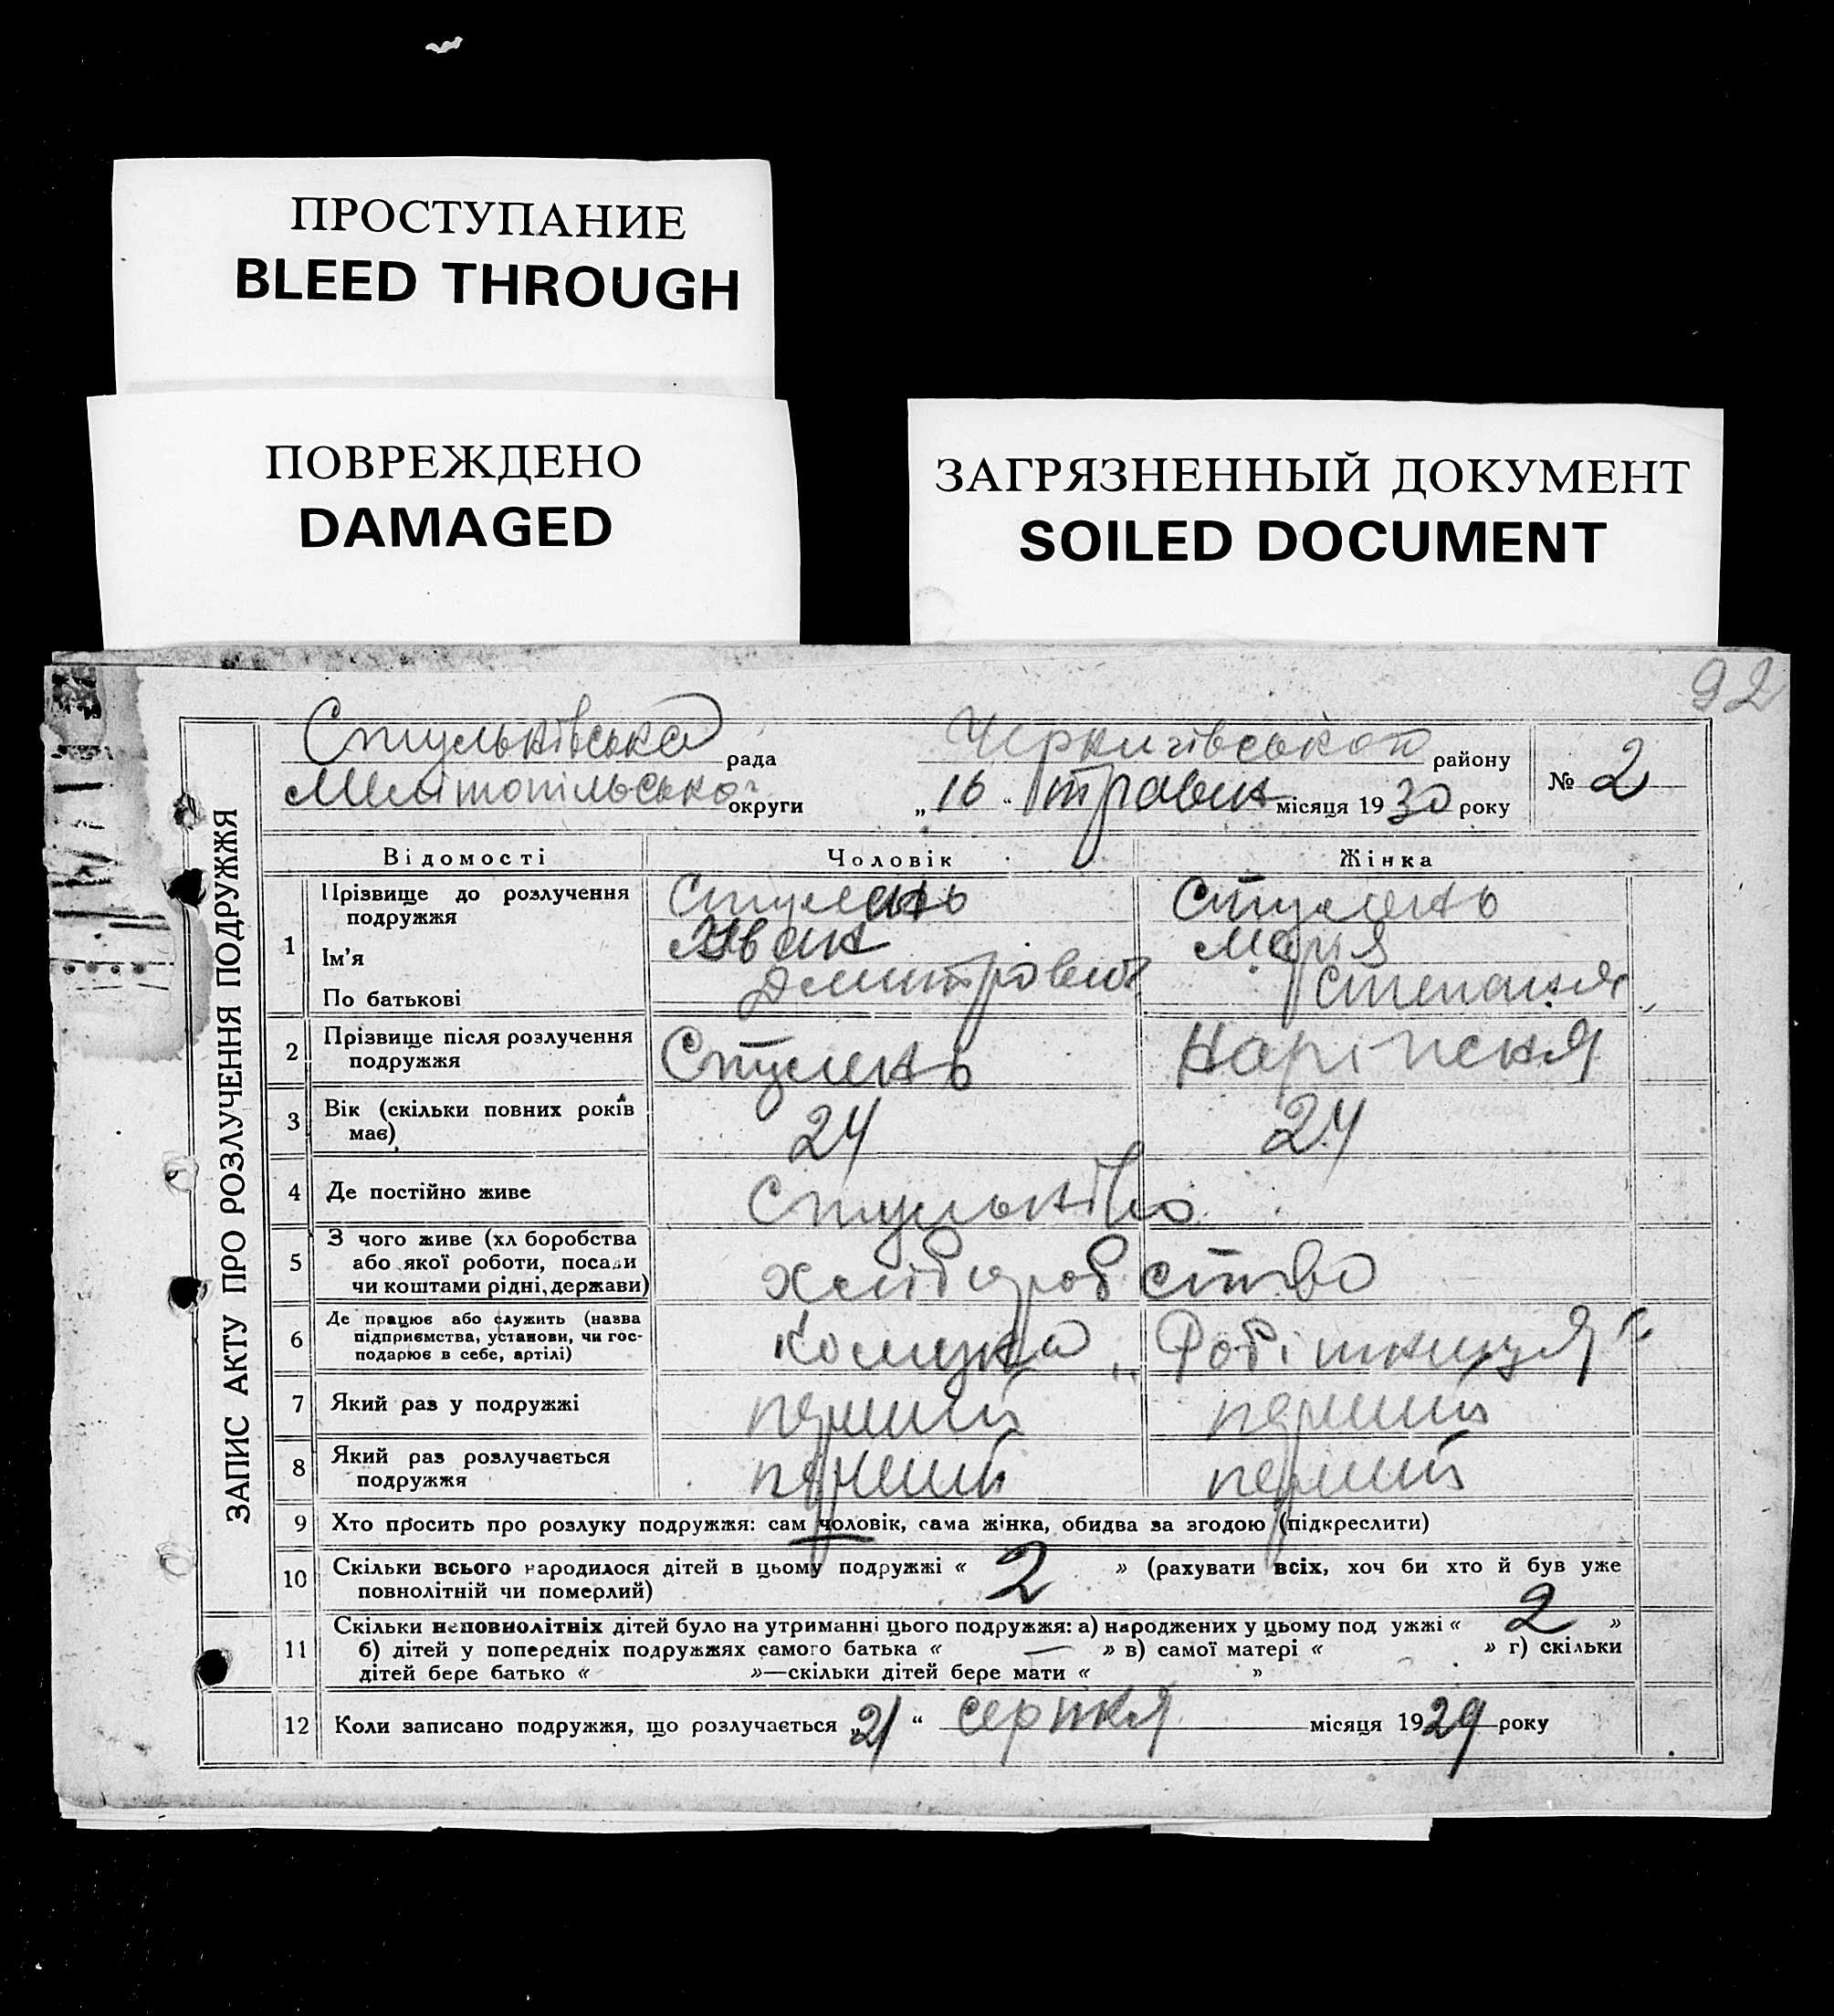 ПРОСТУПАНИЕ
BLEED THROUGH
ПОВРЕЖДЕНО
DAMAGED
ЗАГРЯЗНЕННЫЙ ДОКУМЕНТ
SOILED DOCUMENT
92
ЗАПИС АКТУ ПРО РОЗЛУЧЕННЯ ПОДРУЖЖЯ
Стульнівська рада Чернигівського району № 2
Мелітопільської округи „ 16 “ травня місяця 19 30 року
Відомості Чоловік Жінка
1 Прізвище до розлучення подружжя Стулень Стулень
Ім'я Иван Марія
По батькові Дмитрович
2 Прізвище після розлучення подружжя Стулень
3 Вік (скільки повних років має) 24 24
4 Де постійно живе Стульніво
5 З чого живе (хл боробства або якої роботи, посади чи коштами рідні, держави) хліборобство
6 Де працює або служить (назва підприємства, установи, чи господарює в себе, артілі) Комуна „Робітниця“
7 Який раз у подружжі перший перший
8 Який раз розлучається подружжя перший перший
9 Хто просить про розлуку подружжя: сам чоловік, сама жінка, обидва за згодою (підкреслити)
10 Скільки всього народилося дітей в цьому подружжі « 2 » (рахувати всіх, хоч би хто й був уже
повнолітній чи померлий)
11 Скільки неповнолітніх дітей було на утриманні цього подружжя: а) народжених у цьому под ужжі « 2 »
б) дітей у попередніх подружжях самого батька « — » в) самої матері « » г) скільки
дітей бере батько « »—скільки дітей бере мати « »
12 Коли записано подружжя, що розлучається „21“ серпня місяця 19 29 року